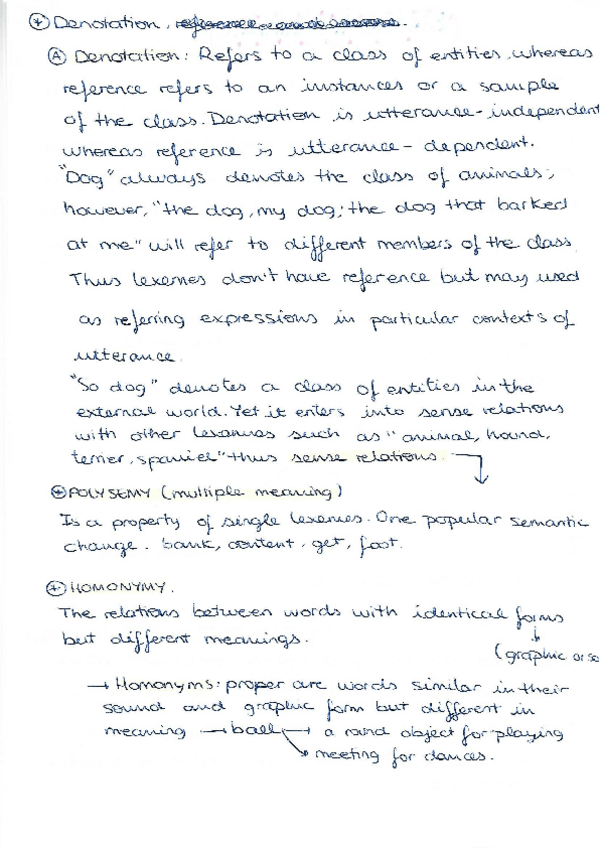 Denotation,
A Denotation: Refers to a class of entities, whereas
reference refers to an instances or a sample
of the class. Denotation is utterance-independent
whereas reference is utterance-dependent.
"Dog" always denotes the class of animals;
however, "the dog, my dog; the dog that barked
at me" will refer to different members of the class
Thus lexemes don't have reference but may used
as referring expressions in particular contexts of
utterance.
"So dog" denotes a class of entities in the
external world. Yet it enters into sense relations
with other lexemes such as "animal, hound,
terrier, spaniel" thus sense relations.
POLYSEMY (multiple meaning)
Is a property of single lexemes. One popular semantic
change. bank, content, get, foot.
HOMONYMY.
The relations between words with identical forms
but different meanings.
(graphic or so
→ Homonyms: proper are words similar in their
sound and graphic form but different in
meaning → ball → a round object for playing
meeting for dances.